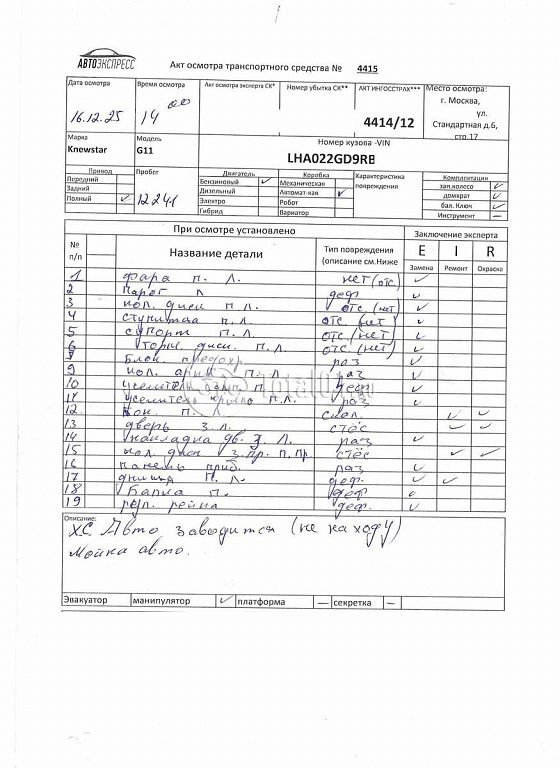 АВТОЭКСПРЕСС
Акт осмотра транспортного средства № 4415
Дата осмотра
16.12.25
Время осмотра
14 00
Акт осмотра эксперта СК*
Номер убытка СК**
АКТ ИНГОССТРАХ***
4414/12
Место осмотра:
г. Москва,
ул.
Стандартная д.6,
стр.17
Марка
Knewstar
Модель
G11
Номер кузова -VIN
LHA022GD9RB
Привод
Передний
Задний
Полный ✓
Пробег
12241
Двигатель
Бензиновый ✓
Дизельный
Электро
Гибрид
Коробка
Механическая
Автомат-кая ✓
Робот
Вариатор
Характеристика
повреждения
Комплектация
зап.колесо ✓
домкрат ✓
бал. Ключ ✓
Инструмент —
При осмотре установлено
Заключение эксперта
№ п/п
Название детали
Тип повреждения (описание см.Ниже
E I R
Замена Ремонт Окраска
1 фара п. л. нет (отс) ✓
2 Парог л деф ✓
3 кол. диск п. л. отс. (нет) ✓
4 ступитца п. л. отс (нет) ✓
5 супорт п. л. отс. (нет) ✓
6 торм. диск. п. л. отс (нет) ✓
Блок предохр раз ✓
9 кол. арка п. л раз ✓
10 усилитель п деф ✓
усилитель крыло п. л. раз ✓
12. п. л. ✓ ✓
13 дверь з. л. стёс ✓ ✓
14 накладка дв. з. л. раз ✓
15 кол. диск з. пр. п. пр. стёс ✓ ✓
16 панель приб. раз ✓
17 днища п. л. деф. ✓ ✓
18 Балка п. деф
19 рул. рейка деф. ✓
Описание:
ХС Авто заводится (не на ходу)
Мойка авто.
Эвакуатор манипулятор ✓ платформа — секретка —
total01.ru